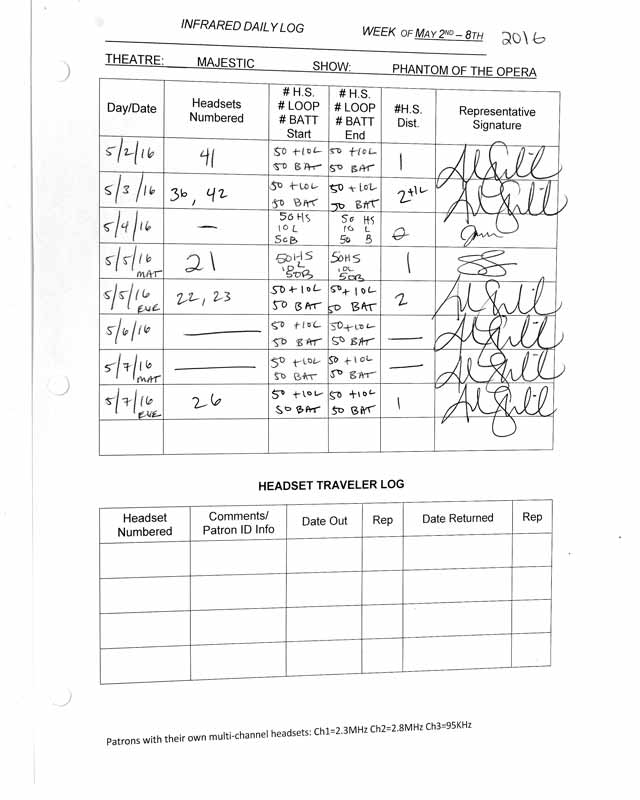 INFRARED DAILY LOG WEEK OF MAY 2ND – 8TH 2016
THEATRE: MAJESTIC SHOW: PHANTOM OF THE OPERA
Day/Date Headsets Numbered # H.S. # LOOP # BATT Start # H.S. # LOOP # BATT End #H.S. Dist. Representative Signature
5/2/16 41 50 +10L 50 BAT 50 +10L 50 BAT 1
5/3/16 36, 42 50 +10L 50 BAT 50 +10L 50 BAT 2+1L
5/4/16 — 50HS 10 L 50B 50 HS 10 L 50 B 0
5/5/16 MAT 21 50HS 10L 50B 50HS 10L 50B 1
5/5/16 EVE 22, 23 50 + 10L 50 BAT 50 + 10L 50 BAT 2
5/6/16 — 50 +10L 50 BAT 50 +10L 50 BAT —
5/7/16 MAT — 50 +10L 50 BAT 50 +10L 50 BAT —
5/7/16 EVE 26 50 +10L 50 BAT 50 +10L 50 BAT 1
HEADSET TRAVELER LOG
Headset Numbered Comments/ Patron ID Info Date Out Rep Date Returned Rep
Patrons with their own multi-channel headsets: Ch1=2.3MHz Ch2=2.8MHz Ch3=95KHz